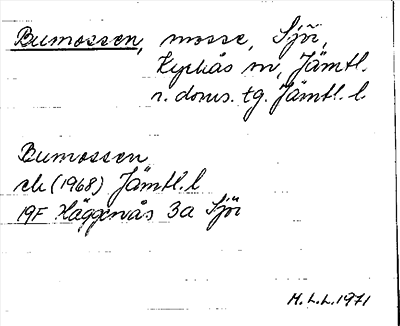 Bumossen, mosse, Sjör,
Kyrkås sn, Jämtl.
n. doms. tg. Jämtl. l.
Bumossen
ek (1968) Jämtl. l
19F Häggenås 3a Sjör
M.L.L. 1971